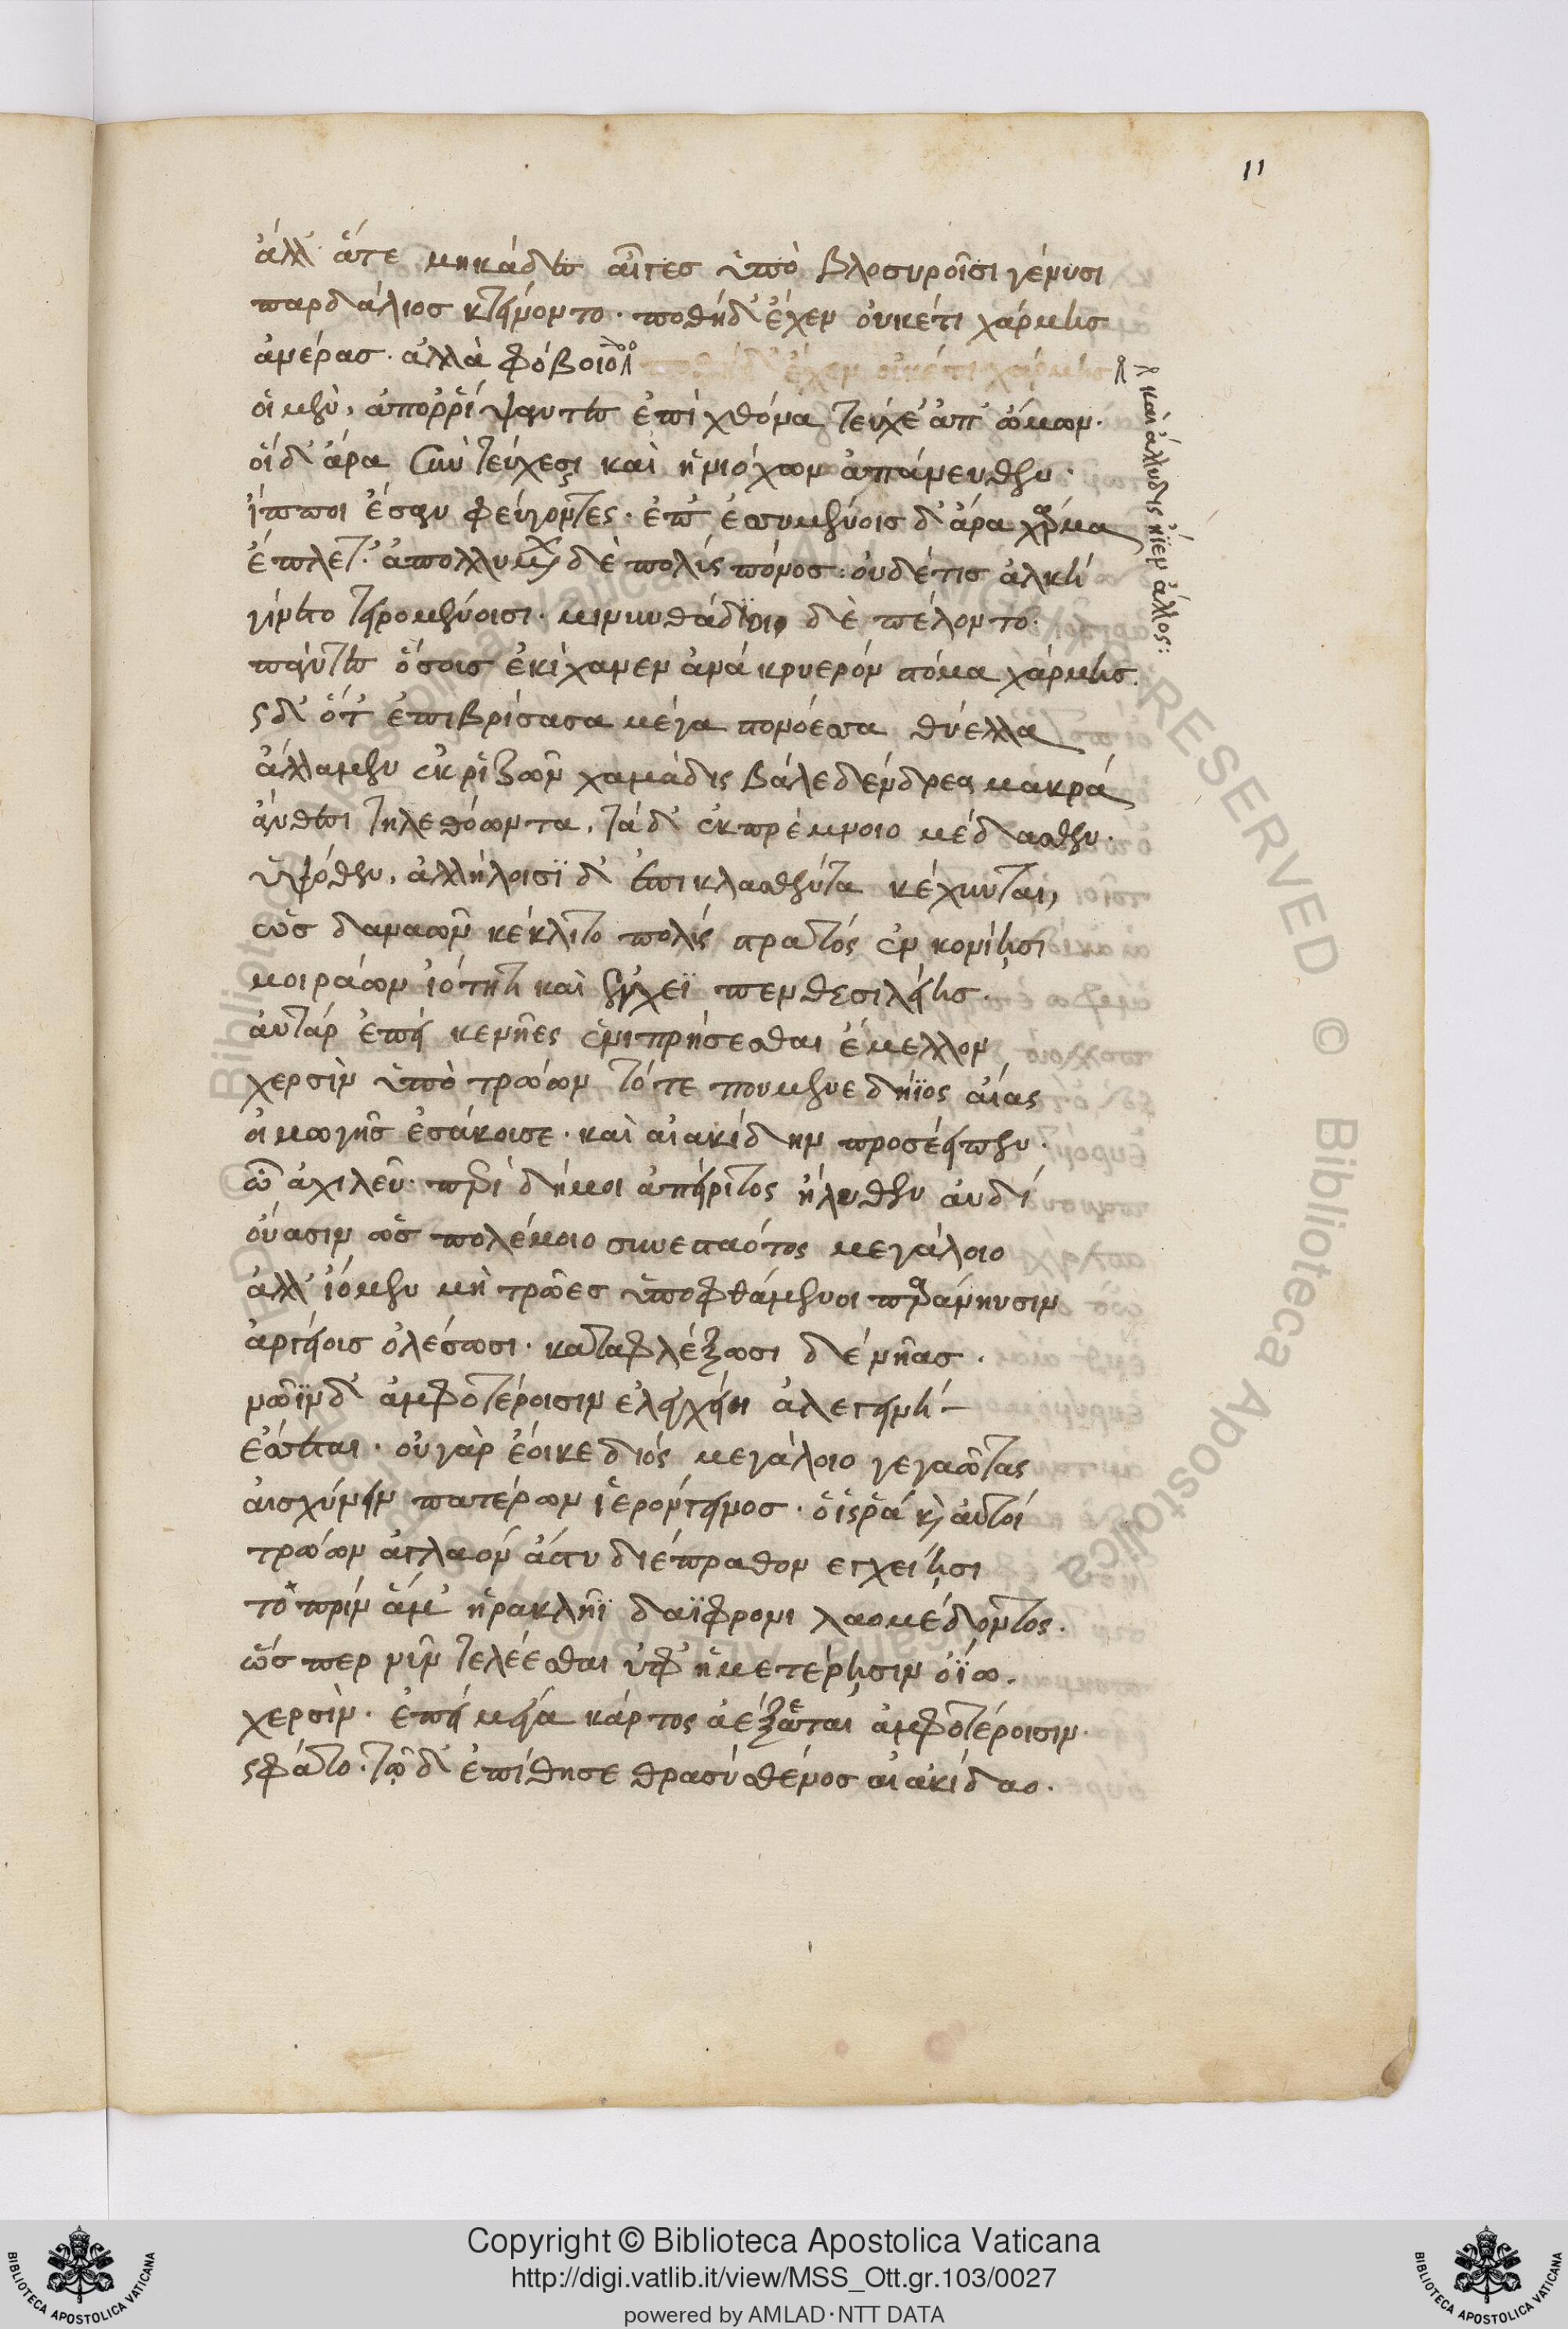 11
ἀλλ' ἅτε μηκάδες αἶγες ὑπὸ βλοσυροῖσι γένυσι
παρδάλιος κτείνοντο. ποθὴ δ' ἔχεν οὐκέτι χάρμης
ἀνέρας. ἀλλὰ φόβοιο
καὶ ἄλλυδις ἤϊεν ἄλλος:
οἱ μὲν, ἀπορρίψαντες ἐπὶ χθόνα τεύχε' ἀπ' ὤμων.
οἱ δ' ἄρα σὺν τεύχεσι καὶ ἡνιόχων ἀπάνευθεν.
ἵπποι ἔσαν φεύγοντες. ἐπ' ἐσσυμένοις δ' ἄρα χάρμα
ἔπλετ'. ἀπολλυμένων δὲ πολὺς πόνος. οὐδέ τις ἀλκὴ
γίνετο τειρομένοισι. μινυνθάδιοι δὲ πέλοντο.
πάντες ὅσοις ἐκίχανεν ἀνὰ κρυερὸν στόμα χάρμης.
ὡς δ' ὅτ' ἐπιβρίσασα μέγα στονόεσσα θύελλα
ἄλλα μὲν ἐκ ῥιζῶν χαμάδις βάλε δένδρεα μακρά
ἄνθεσι τηλεθόωντα. τὰ δ' ἐκ πρέμνοιο μέδασθεν.
ὑψόθεν, ἀλλήλοισι δ' ἐπικλασθέντα κέχυνται,
ὣς δαναῶν κέκλιτο πολὺς στρατὸς ἐν κονίῃσι
μοιράων ἰότητι καὶ ἔγχεϊ πενθεσιλείης.
αὐτὰρ ἐπεί κε νῆες ἐνιπρήσεσθαι ἔμελλον
χερσὶν ὑπὸ τρώων τότε που μενεδήϊος αἴας
οἰμωγῆς ἐσάκουσε. καὶ αἰακίδην προσέειπεν.
ὦ ἀχιλεῦ. περὶ δή μοι ἀπείριτος ἤλυθεν αὐδὴ
οὔασιν ὡς πολέμοιο συνεσταότος μεγάλοιο
ἀλλ' ἴομεν μὴ τρῶες ὑποφθάμενοι παρὰ νηυσὶν
ἀργείους ὀλέσωσι. καταφλέξωσι δὲ νῆας.
νῶϊν δ' ἀμφοτέροισιν ἐλεγχείη ἀλεγεινὴ
ἔσσεται. οὐ γὰρ ἔοικε διὸς μεγάλοιο γεγαῶτας
αἰσχύνειν πατέρων ἱερὸν γένος. οἵ ῥα καὶ αὐτοὶ
τρώων ἀγλαὸν ἄστυ διέπραθον ἐγχείῃσι
τὸ πρὶν ἅμ' ἡρακλῆϊ δαΐφρονι λαομέδοντος.
ὥσπερ νῦν τελέεσθαι ὑφ' ἡμετέρῃσιν ὀΐω.
χερσὶν. ἐπεὶ μέγα κάρτος ἀέξεται ἀμφοτέροισιν.
ὣς φάτο. τῷ δ' ἐπίθησε θρασὺ σθένος αἰακίδαο.
Copyright © Biblioteca Apostolica Vaticana
http://digi.vatlib.it/view/MSS_Ott.gr.103/0027
powered by AMLAD·NTT DATA